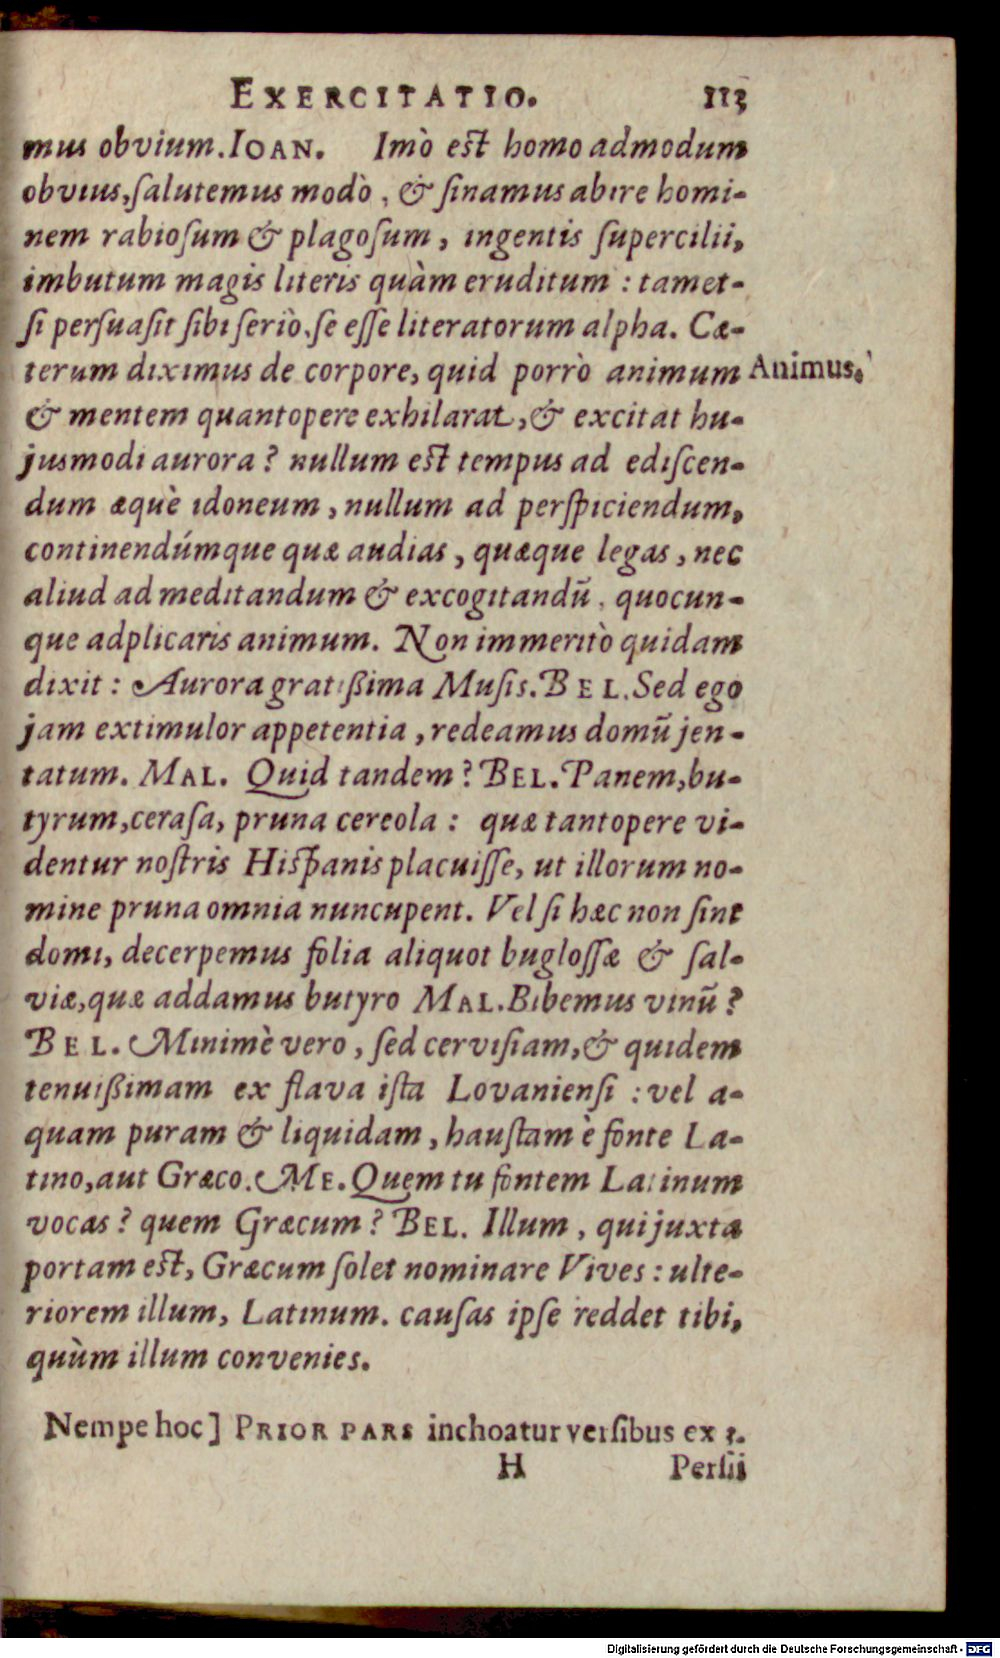 EXERCITATIO. 113
mus obvium. IOAN. Imò est homo admodum
obvius, salutemus modò, & sinamus abire homi-
nem rabiosum & plagosum, ingentis supercilii,
imbutum magis literis quàm eruditum: tamet-
si persuasit sibi seriò, se esse literatorum alpha. Cæ-
terum diximus de corpore, quid porrò animum Animus.
& mentem quantopere exhilarat, & excitat hu-
jusmodi aurora? nullum est tempus ad ediscen-
dum æquè idoneum, nullum ad perspiciendum,
continendúmque quæ audias, quæque legas, nec
aliud ad meditandum & excogitandū, quocun-
que adplicaris animum. Non immeritò quidam
dixit: Aurora gratißima Musis. BEL. Sed ego
jam extimulor appetentia, redeamus domū jen-
tatum. MAL. Quid tandem? BEL. Panem, bu-
tyrum, cerasa, pruna cereola: quæ tantopere vi-
dentur nostris Hispanis placuisse, ut illorum no-
mine pruna omnia nuncupent. Vel si hæc non sint
domi, decerpemus folia aliquot buglossæ & sal-
viæ, quæ addamus butyro MAL. Bibemus vinū?
BEL. Minimè vero, sed cervisiam, & quidem
tenuißimam ex flava ista Lovaniensi: vel a-
quam puram & liquidam, haustam è fonte La-
tino, aut Græco. ME. Quem tu fontem Latinum
vocas? quem Græcum? BEL. Illum, qui juxta
portam est, Græcum solet nominare Vives: ulte-
riorem illum, Latinum. causas ipse reddet tibi,
quùm illum convenies.
Nempe hoc] PRIOR PARS inchoatur versibus ex 3.
H Persii
Digitalisierung gefördert durch die Deutsche Forschungsgemeinschaft - DFG